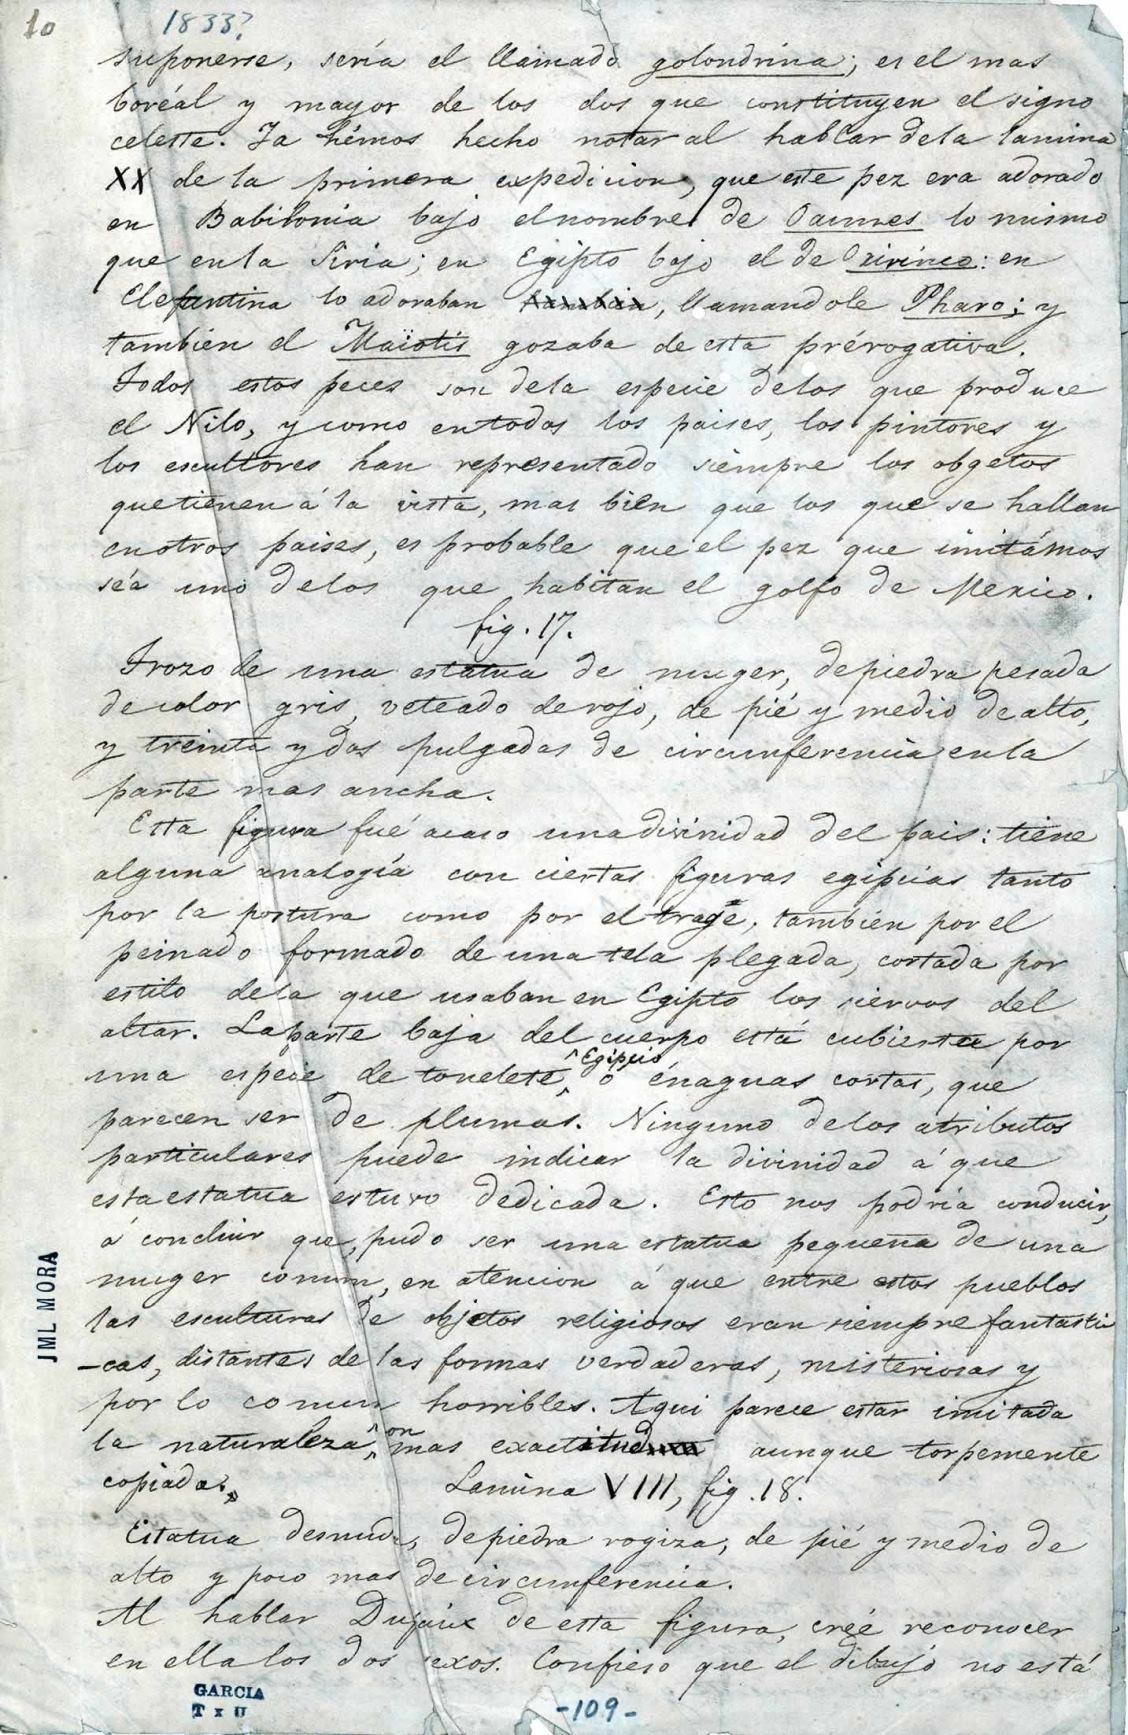 10
1833?
suponerse, sería el llamado golondrina; es el mas
boréal y mayor de los dos que constituyen el signo
celeste. Ya hémos hecho notar al hablar dela lamina
XX de la primera expedicion, que este pez era adorado
en Babilonia bajo el nombre de Oannes lo mismo
que en la Siria; en Egipto bajo el de Oxirinco: en
Elefantina lo adoraban , llamandole Pharo; y
tambien el Maïotis gozaba de esta prérogativa.
Todos estos peces son dela especie delos que produce
el Nilo, y como en todos los paises, los pintores y
los escultores han representado siempre los obgetos
que tienen á la vista, mas bien que los que se hallan
en otros paises, es probable que el pez que imitámos
séa uno delos que habitan el golfo de Mexico.
fig. 17.
Trozo de una estatua de muger, de piedra pesada
de color gris, veteado de rojo, de pié y medio de alto,
y treinta y dos pulgadas de circunferencia en la
parte mas ancha.
Esta figura fué acaso una divinidad del pais: tiene
alguna analogía con ciertas figuras egipcias tanto
por la postura como por el trage, tambien por el
peinado formado de una tela plegada, cortada por
estilo dela que usaban en Egipto los siervos del
altar. La parte baja del cuerpo está cubierta por
Egipcio
una especie de tonelete, ó énaguas cortas, que
parecen ser de plumas. Ninguno delos atributos
particulares puede indicar la divinidad á que
esta estatua estuvo dedicada. Esto nos podría conducir,
á concluir que, pudo ser una estatua pequeña de una
muger comun, en atencion á que entre estos pueblos
las esculturas de objetos religiosos eran siempre fantasti
-cas, distantes de las formas verdaderas, misteriosas y
por lo comun horribles. Aqui parece estar imitada
la naturaleza, con mas exactitud aunque torpemente
copiada.
Lamina VIII, fig. 18.
Estatua desnuda, de piedra rogiza, de pié y medio de
alto y poco mas de circunferencia.
Al hablar Dupaix de esta figura, créé reconocer
en ella los dos sexos. Confieso que el dibujo no está
JML MORA
GARCIA
T x U
-109-